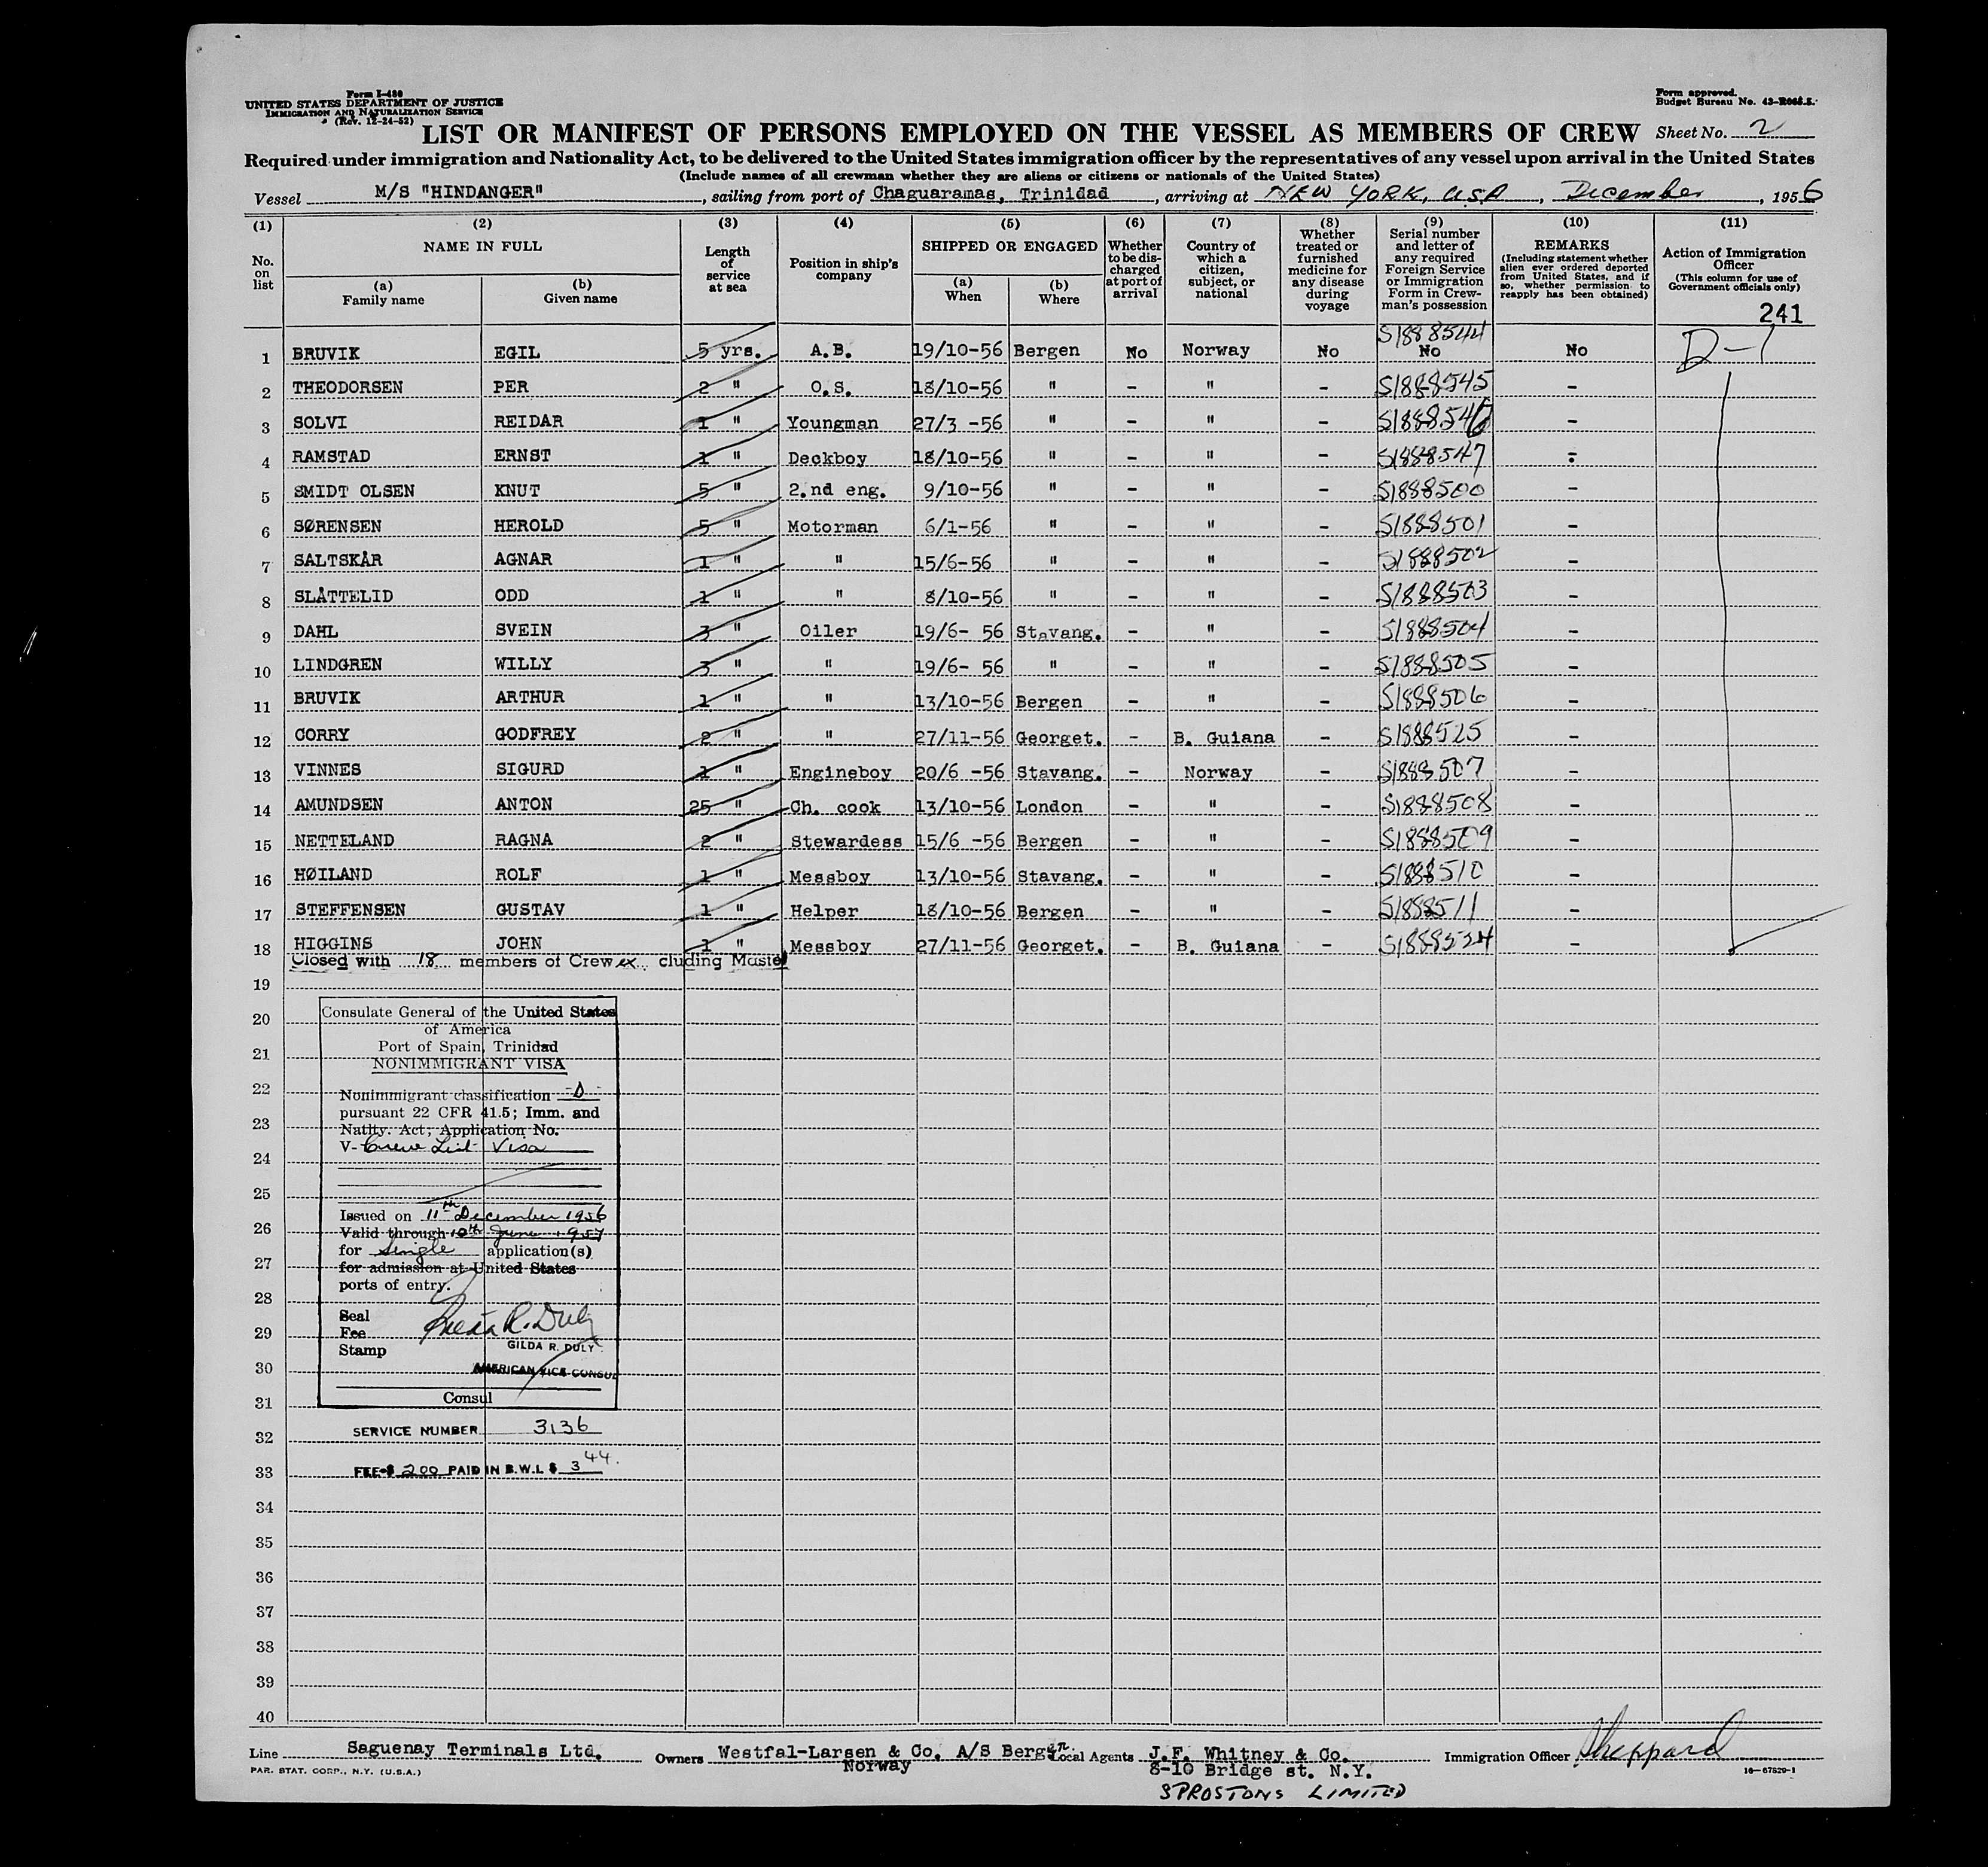 Form I-480
UNITED STATES DEPARTMENT OF JUSTICE
IMMIGRATION AND NATURALIZATION SERVICE
(Rev. 12-24-52)
Form approved.
Budget Bureau No. 43-R065.5.
LIST OR MANIFEST OF PERSONS EMPLOYED ON THE VESSEL AS MEMBERS OF CREW Sheet No. 2
Required under immigration and Nationality Act, to be delivered to the United States immigration officer by the representatives of any vessel upon arrival in the United States
(Include names of all crewman whether they are aliens or citizens or nationals of the United States)
Vessel M/S "HINDANGER", sailing from port of Chaguaramas, Trinidad, arriving at NEW YORK, USA, December, 1956
(1) No. on list
(2) NAME IN FULL
(a) Family name
(b) Given name
(3) Length of service at sea
(4) Position in ship's company
(5) SHIPPED OR ENGAGED
(a) When
(b) Where
(6) Whether to be discharged at port of arrival
(7) Country of which a citizen, subject, or national
(8) Whether treated or furnished medicine for any disease during voyage
(9) Serial number and letter of any required Foreign Service or Immigration Form in Crewman's possession
(10) REMARKS (Including statement whether alien ever ordered deported from United States, and if so, whether permission to reapply has been obtained)
(11) Action of Immigration Officer (This column for use of Government officials only)
241
1 BRUVIK EGIL 5 yrs. A.B. 19/10-56 Bergen No Norway No S1888544 No No D-1
2 THEODORSEN PER 2 " O.S. 18/10-56 " - " - S1888545 -
3 SOLVI REIDAR 1 " Youngman 27/3 -56 " - " - S1888546 -
4 RAMSTAD ERNST 1 " Deckboy 18/10-56 " - " - S1888547 -
5 SMIDT OLSEN KNUT 5 " 2.nd eng. 9/10-56 " - " - S1888500 -
6 SØRENSEN HEROLD 5 " Motorman 6/1-56 " - " - S1888501 -
7 SALTSKÅR AGNAR 1 " " 15/6-56 " - " - S1888502 -
8 SLÅTTELID ODD 1 " " 8/10-56 " - " - S1888503 -
9 DAHL SVEIN 3 " Oiler 19/6- 56 Stavang. - " - S1888504 -
10 LINDGREN WILLY 3 " " 19/6- 56 " - " - S1888505 -
11 BRUVIK ARTHUR 1 " " 13/10-56 Bergen - " - S1888506 -
12 CORRY GODFREY 2 " " 27/11-56 Georget. - B. Guiana - S1888525 -
13 VINNES SIGURD 1 " Engineboy 20/6 -56 Stavang. - Norway - S1888507 -
14 AMUNDSEN ANTON 25 " Ch. cook 13/10-56 London - " - S1888508 -
15 NETTELAND RAGNA 2 " Stewardess 15/6 -56 Bergen - " - S1888509 -
16 HØILAND ROLF 1 " Messboy 13/10-56 Stavang. - " - S1888510 -
17 STEFFENSEN GUSTAV 1 " Helper 18/10-56 Bergen - " - S1888511 -
18 HIGGINS JOHN 1 " Messboy 27/11-56 Georget. - B. Guiana - S1888524 -
Closed with 18 members of Crew ex cluding Master
19
20
21
22
23
24
25
26
27
28
29
30
31
32
33
34
35
36
37
38
39
40
Consulate General of the United States
of America
Port of Spain, Trinidad
NONIMMIGRANT VISA
Nonimmigrant classification D
pursuant 22 CFR 41.5; Imm. and
Natlty. Act; Application No.
V- Crew List Visa
Issued on 11th December 1956
Valid through 10th June 1957
for Single application(s)
for admission at United States
ports of entry.
Seal
Fee
Stamp
Gilda R. Duly
GILDA R. DULY
AMERICAN VICE CONSUL
Consul
SERVICE NUMBER 3136
FEE $ 2.00 PAID IN B.W.I. $ 3.44
Line Saguenay Terminals Ltd. Owners Westfal-Larsen & Co. A/S Bergen Norway Local Agents J.F. Whitney & Co.
8-10 Bridge st. N.Y.
SPROSTONS LIMITED
Immigration Officer Sheppard
PAR. STAT. CORP., N.Y. (U.S.A.)
16-67529-1